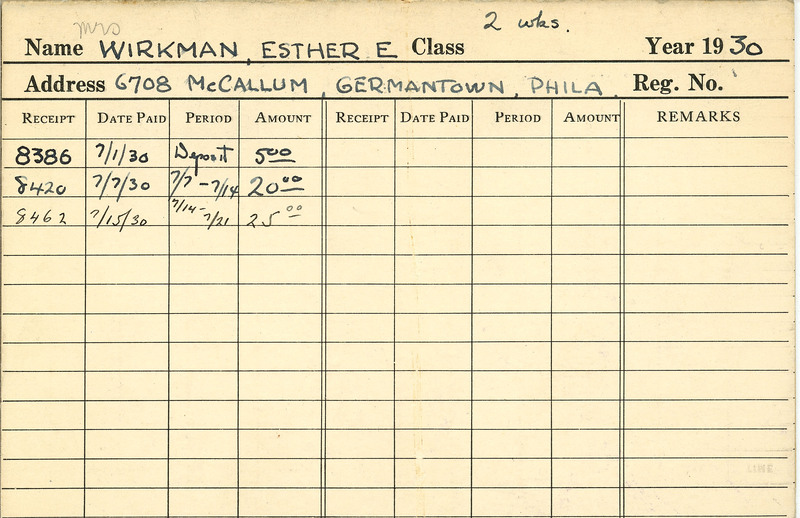 Mrs 2 wks.
Name WIRKMAN, ESTHER E Class Year 1930
Address 6708 McCALLUM, GERMANTOWN, PHILA. Reg. No.
RECEIPT DATE PAID PERIOD AMOUNT RECEIPT DATE PAID PERIOD AMOUNT REMARKS
8386 7/1/30 Deposit 5 00
8420 7/7/30 7/7-7/14 20 00
8462 7/15/30 7/14-7/21 25 00
LINE